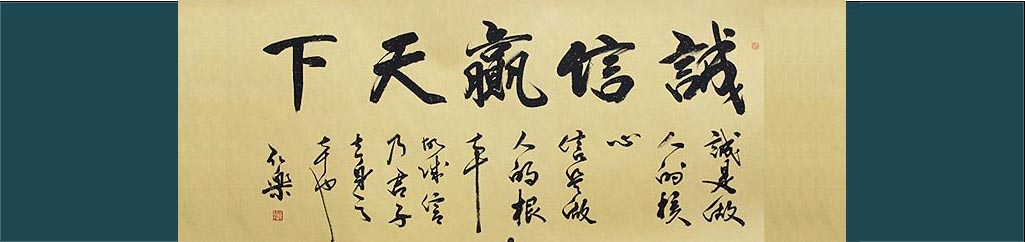 誠信贏天下
誠是做
人的核
心
信是做
人的根
本
故誠信
乃君子
立身之
本也
樂